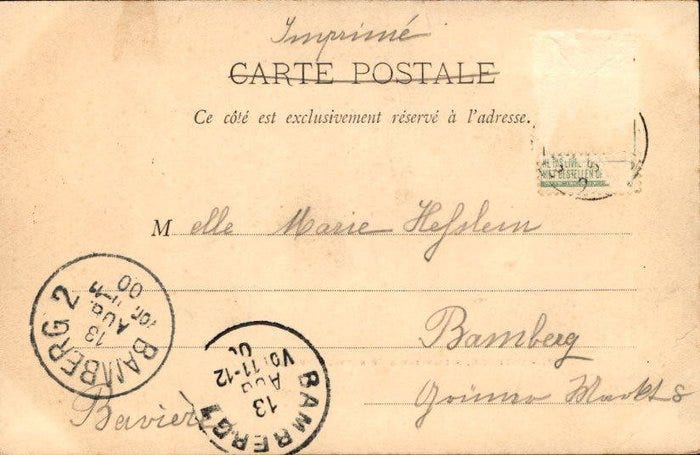 Imprimé
CARTE POSTALE
Ce côté est exclusivement réservé à l'adresse.
NE PAS LIVR
NIET BESTELLEN OP
Melle Marie Hesslein
Bamberg
Grüner Markt 8
Bavière
BAMBERG 2
13
AUG.
VOR. 11-
00
BAMBERG 1
13
AUG
VOR 11-12
00